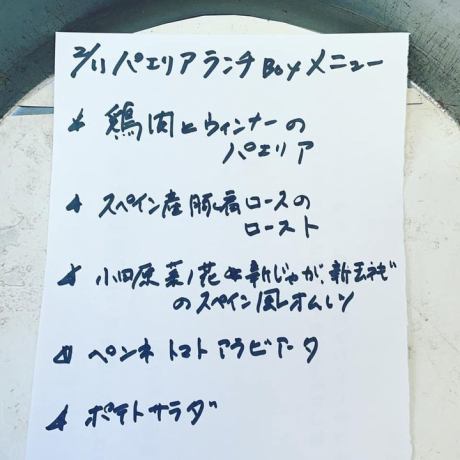 2/11 パエリアランチBoxメニュー
★ 鶏肉とウィンナーの
パエリア
★ スペイン産豚肩ロースの
ロースト
★ 小田原菜ノ花と新じゃが、新玉ねぎ
のスペイン風オムレツ
★ ペンネ トマトアラビアータ
★ ポテトサラダ